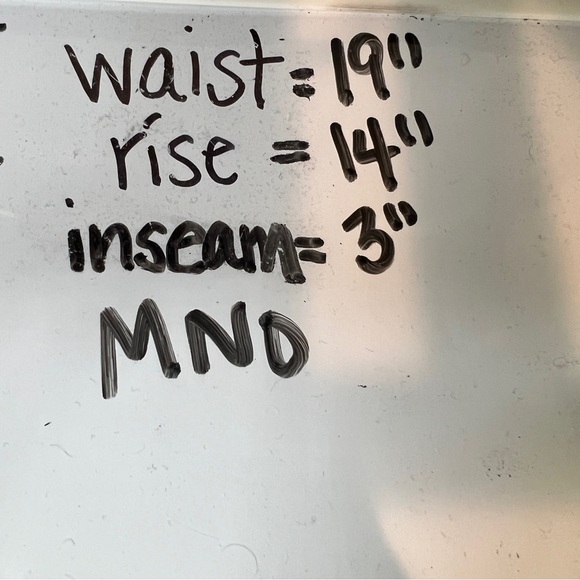 waist = 19"
rise = 14"
inseam = 3"
MND